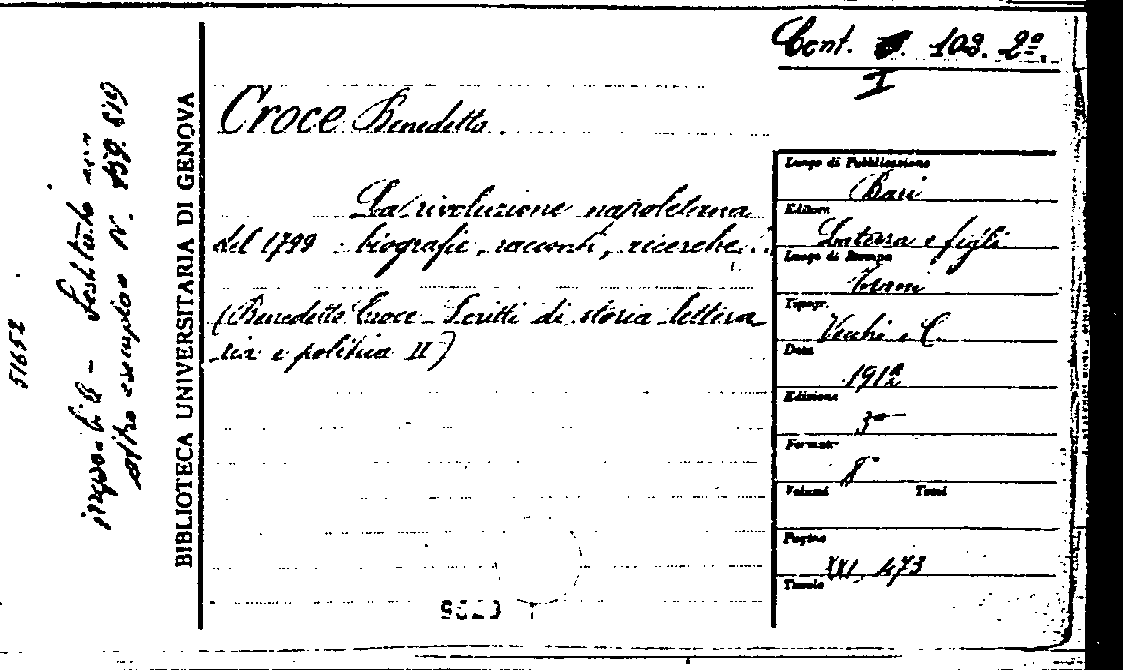 Cont. 103. 2º.
I
Croce Benedetto.
La rivoluzione napoletana
del 1799 - biografie, racconti, ricerche.
(Benedetto Croce - Scritti di storia lettera
ria e politica II)
Luogo di Pubblicazione
Bari
Editore
Laterza e figli
Luogo di Stampa
Trani
Tipogr.
Vecchi e C.
Data
1912
Edizione
3ª
Formato
8º
Volumi Tomi
Pagine
XXI, 473
Tavole
BIBLIOTECA UNIVERSITARIA DI GENOVA
irreperibile - Sostituito con
altro esemplare N.
51652